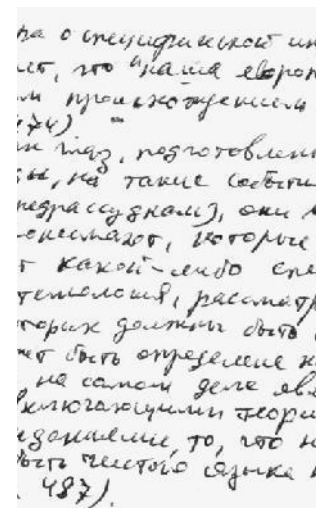 ра о специфической ин
ет, что "наша европ
м происхождением
474)
их глаз, подготовлен
ы, на такие событи
предрассудкам), они
которые
т какой-либо спе
темология, рассматр
торых должны быть
жет быть определение н
на самом деле явл
включающими теори
иданиями, то, что н
быть чистого языка н
487).